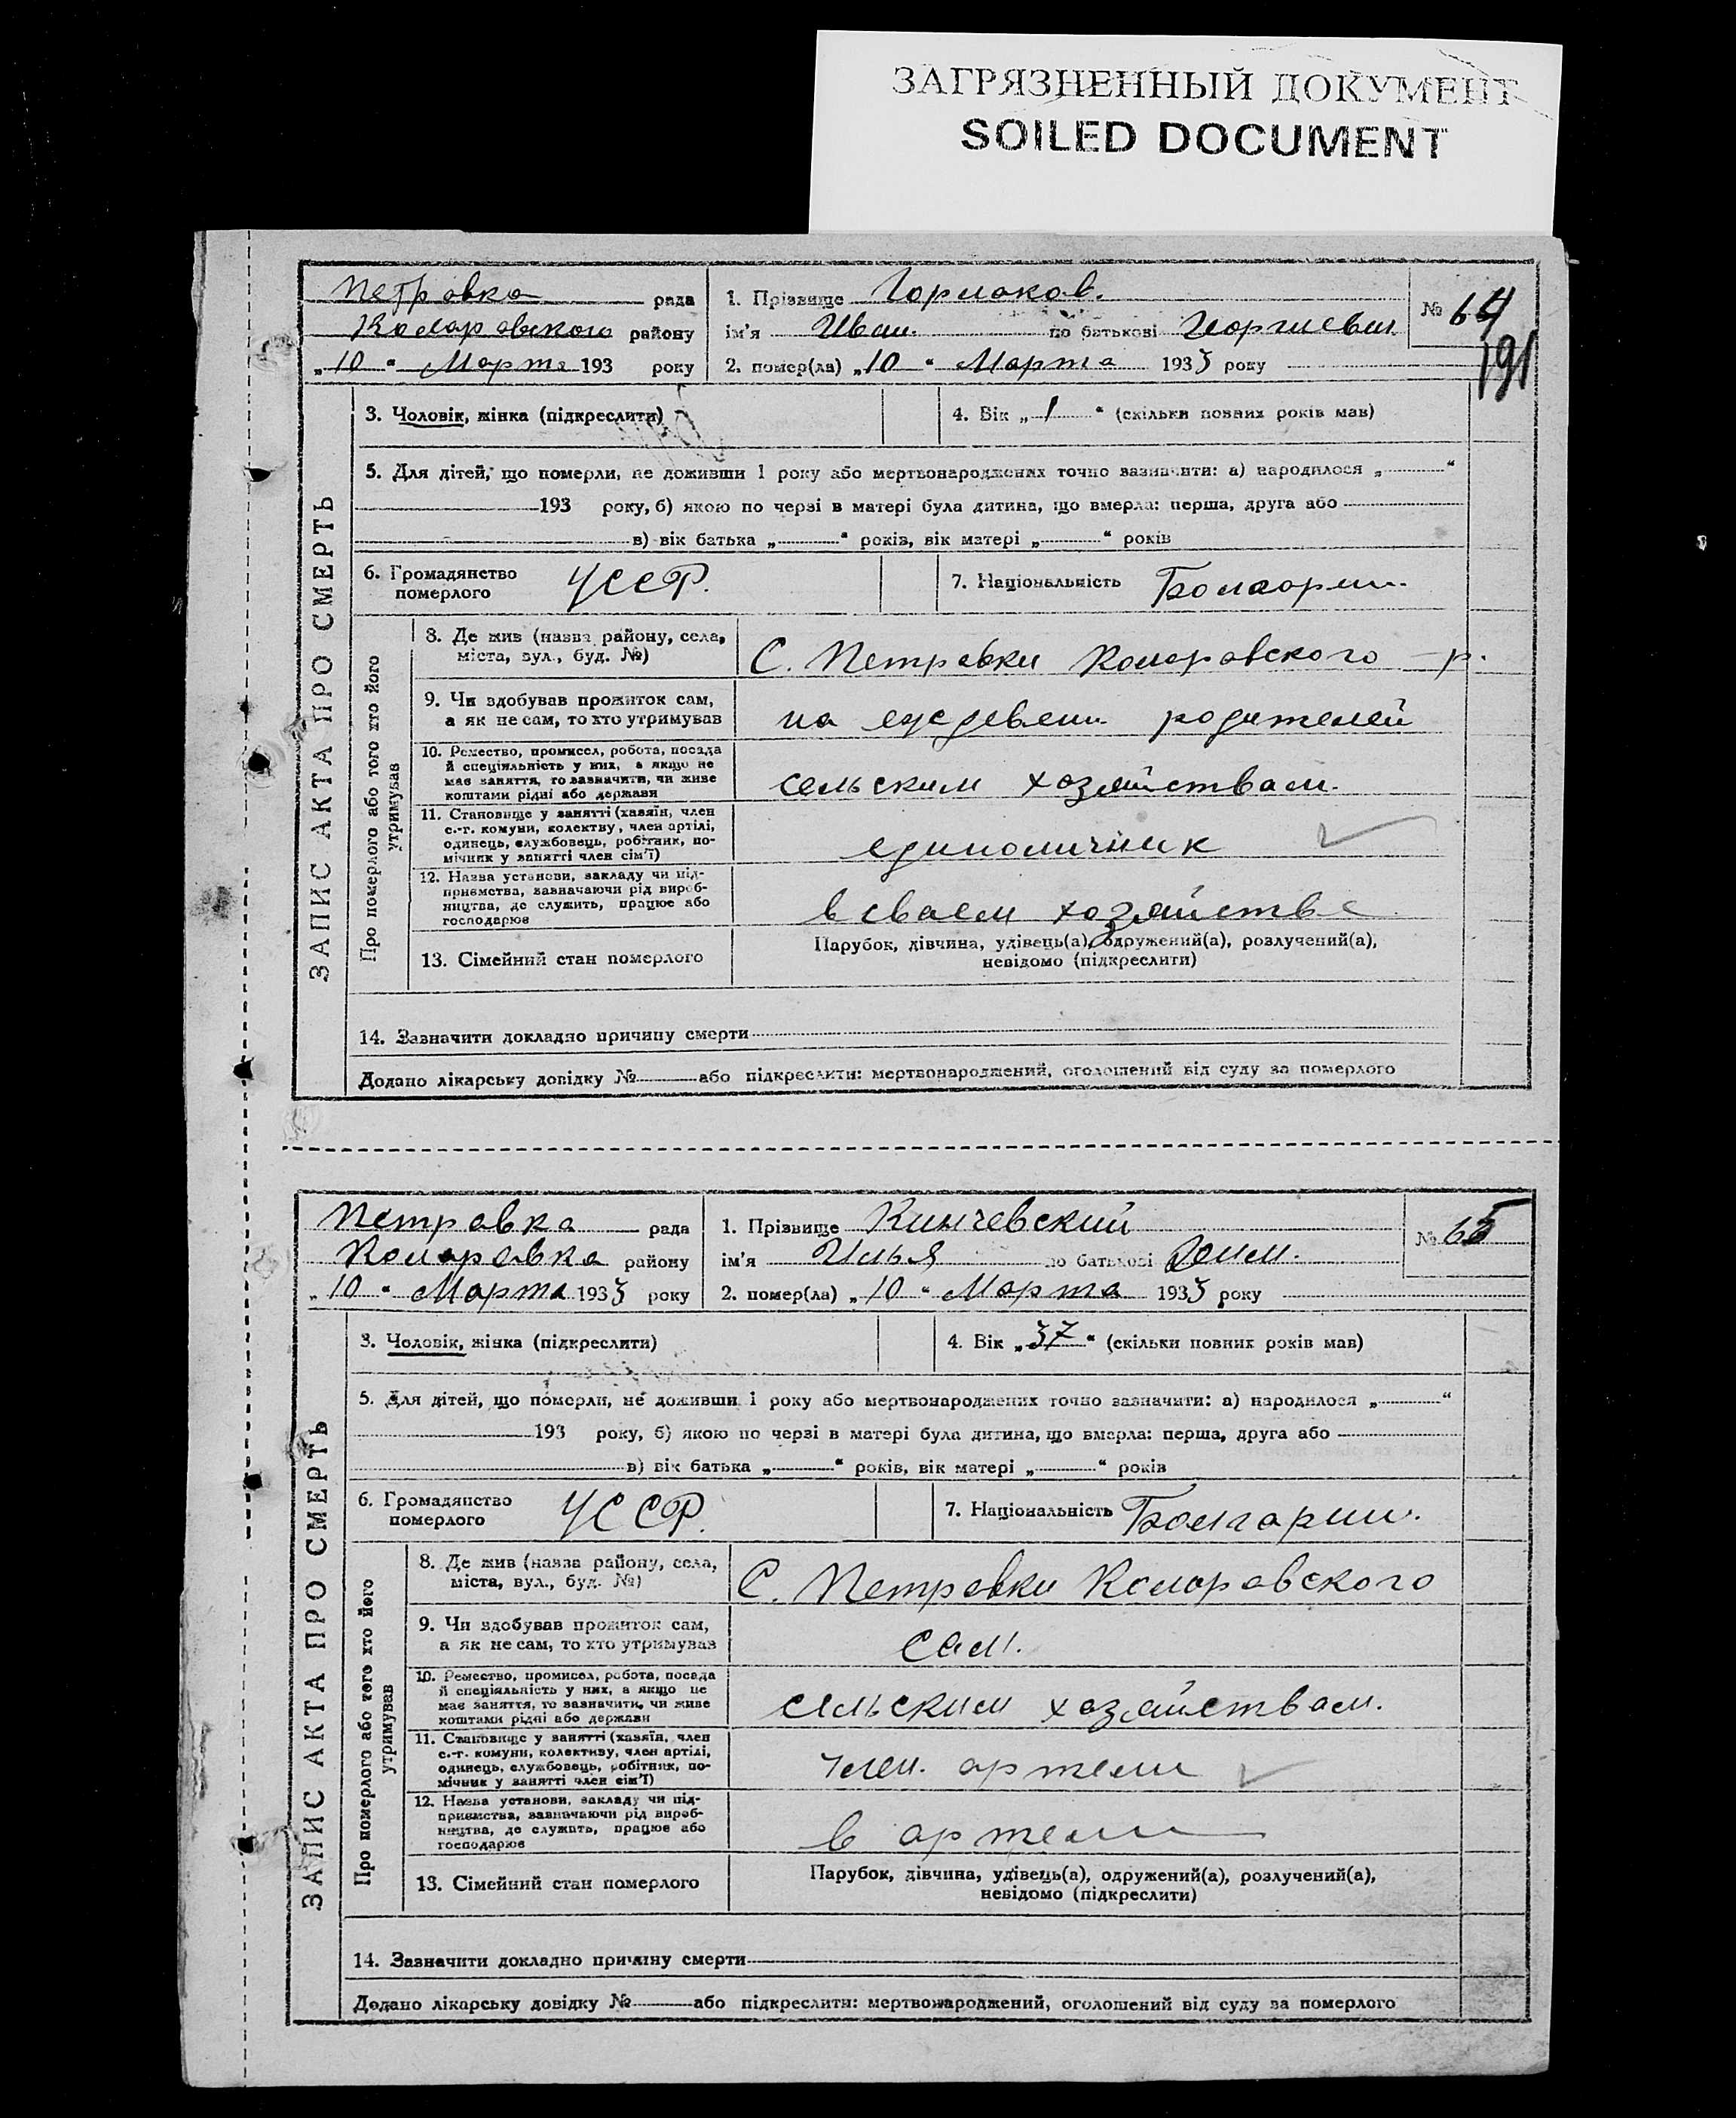 ЗАГРЯЗНЕННЫЙ ДОКУМЕНТ
SOILED DOCUMENT
Петровка рада
района району
„10“ Марта 193 року
1. Прізвище
ім'я Иван по батькові Георгиевич
2. помер(ла) „10“ Марта 1933 року
№ 64
191
ЗАПИС АКТА ПРО СМЕРТЬ
3. Чоловік, жінка (підкреслити)
4. Вік „1“ (скільки повних років мав)
5. Для дітей, що померли, не доживши 1 року або мертвонароджених точно зазначити: а) народилося „ “
193 року, б) якою по черзі в матері була дитина, що вмерла: перша, друга або
в) вік батька „ “ років, вік матері „ “ років
6. Громадянство
померлого
УССР.
7. Національність Болгарин.
Про померлого або того хто його
утримував
8. Де жив (назва району, села,
міста, вул., буд. №)
С. Петровки Комаровского р.
9. Чи здобував прожиток сам,
а як не сам, то хто утримував
на родителей
10. Ремество, промисел, робота, посада
й спеціяльність у них, а якщо не
має заняття, то зазначити, чи живе
коштами рідні або держави
сельским хозяйствам.
11. Становище у занятті (хазяїн, член
с.-г. комуни, колективу, член артілі,
одинець, службовець, робітник, по-
мічник у занятті член сім'ї)
единоличник
12. Назва установи, закладу чи під-
приємства, зазначаючи рід вироб-
ництва, де служить, працює або
господарює
в сваем хозяйстве
13. Сімейний стан померлого
Парубок, дівчина, удівець(а), одружений(а), розлучений(а),
невідомо (підкреслити)
14. Зазначити докладно причину смерти
Додано лікарську довідку № або підкреслити: мертвонароджений, оголошений від суду за померлого
Петровка рада
Комаровка району
„10“ Марта 1933 року
1. Прізвище Кинчевский
ім'я Илья по батькові
2. помер(ла) „10“ Марта 1933 року
№ 65
ЗАПИС АКТА ПРО СМЕРТЬ
3. Чоловік, жінка (підкреслити)
4. Вік „37“ (скільки повних років мав)
5. Для дітей, що померли, не доживши 1 року або мертвонароджених точно зазначити: а) народилося „ “
193 року, б) якою по черзі в матері була дитина, що вмерла: перша, друга або
в) вік батька „ “ років, вік матері „ “ років
6. Громадянство
померлого
УССР.
7. Національність Болгарин.
Про померлого або того хто його
утримував
8. Де жив (назва району, села,
міста, вул., буд. №)
С. Петровки Комаровского
9. Чи здобував прожиток сам,
а як не сам, то хто утримував
сам.
10. Ремество, промисел, робота, посада
й спеціяльність у них, а якщо не
має заняття, то зазначити, чи живе
коштами рідні або держави
сельским хозяйствам.
11. Становище у занятті (хазяїн, член
с.-г. комуни, колективу, член артілі,
одинець, службовець, робітник, по-
мічник у занятті член сім'ї)
член. артели
12. Назва установи, закладу чи під-
приємства, зазначаючи рід вироб-
ництва, де служить, працює або
господарює
в артели
13. Сімейний стан померлого
Парубок, дівчина, удівець(а), одружений(а), розлучений(а),
невідомо (підкреслити)
14. Зазначити докладно причину смерти
Додано лікарську довідку № або підкреслити: мертвонароджений, оголошений від суду за померлого